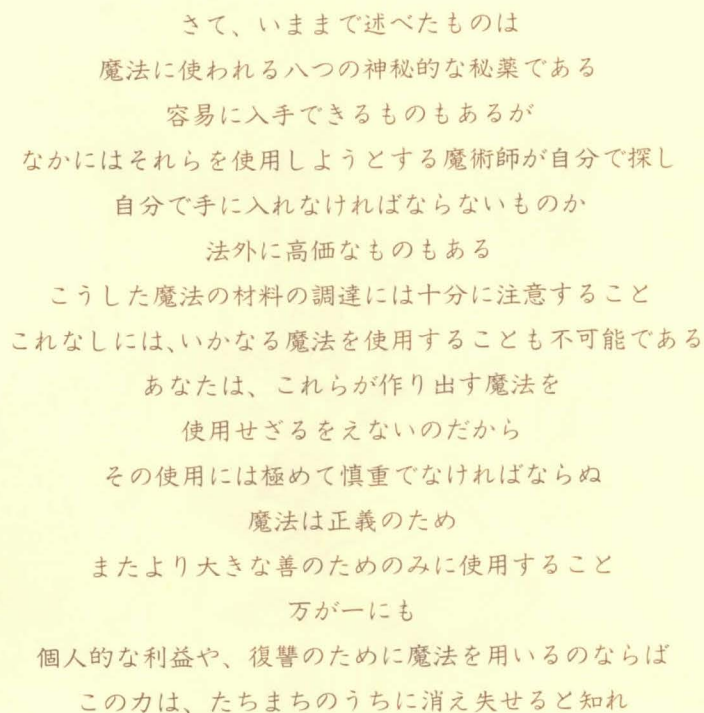 さて、いままで述べたものは
魔法に使われる八つの神秘的な秘薬である
容易に入手できるものもあるが
なかにはそれらを使用しようとする魔術師が自分で探し
自分で手に入れなければならないものか
法外に高価なものもある
こうした魔法の材料の調達には十分に注意すること
これなしには、いかなる魔法を使用することも不可能である
あなたは、これらが作り出す魔法を
使用せざるをえないのだから
その使用には極めて慎重でなければならぬ
魔法は正義のため
またより大きな善のためのみに使用すること
万が一にも
個人的な利益や、復讐のために魔法を用いるのならば
この力は、たちまちのうちに消え失せると知れ